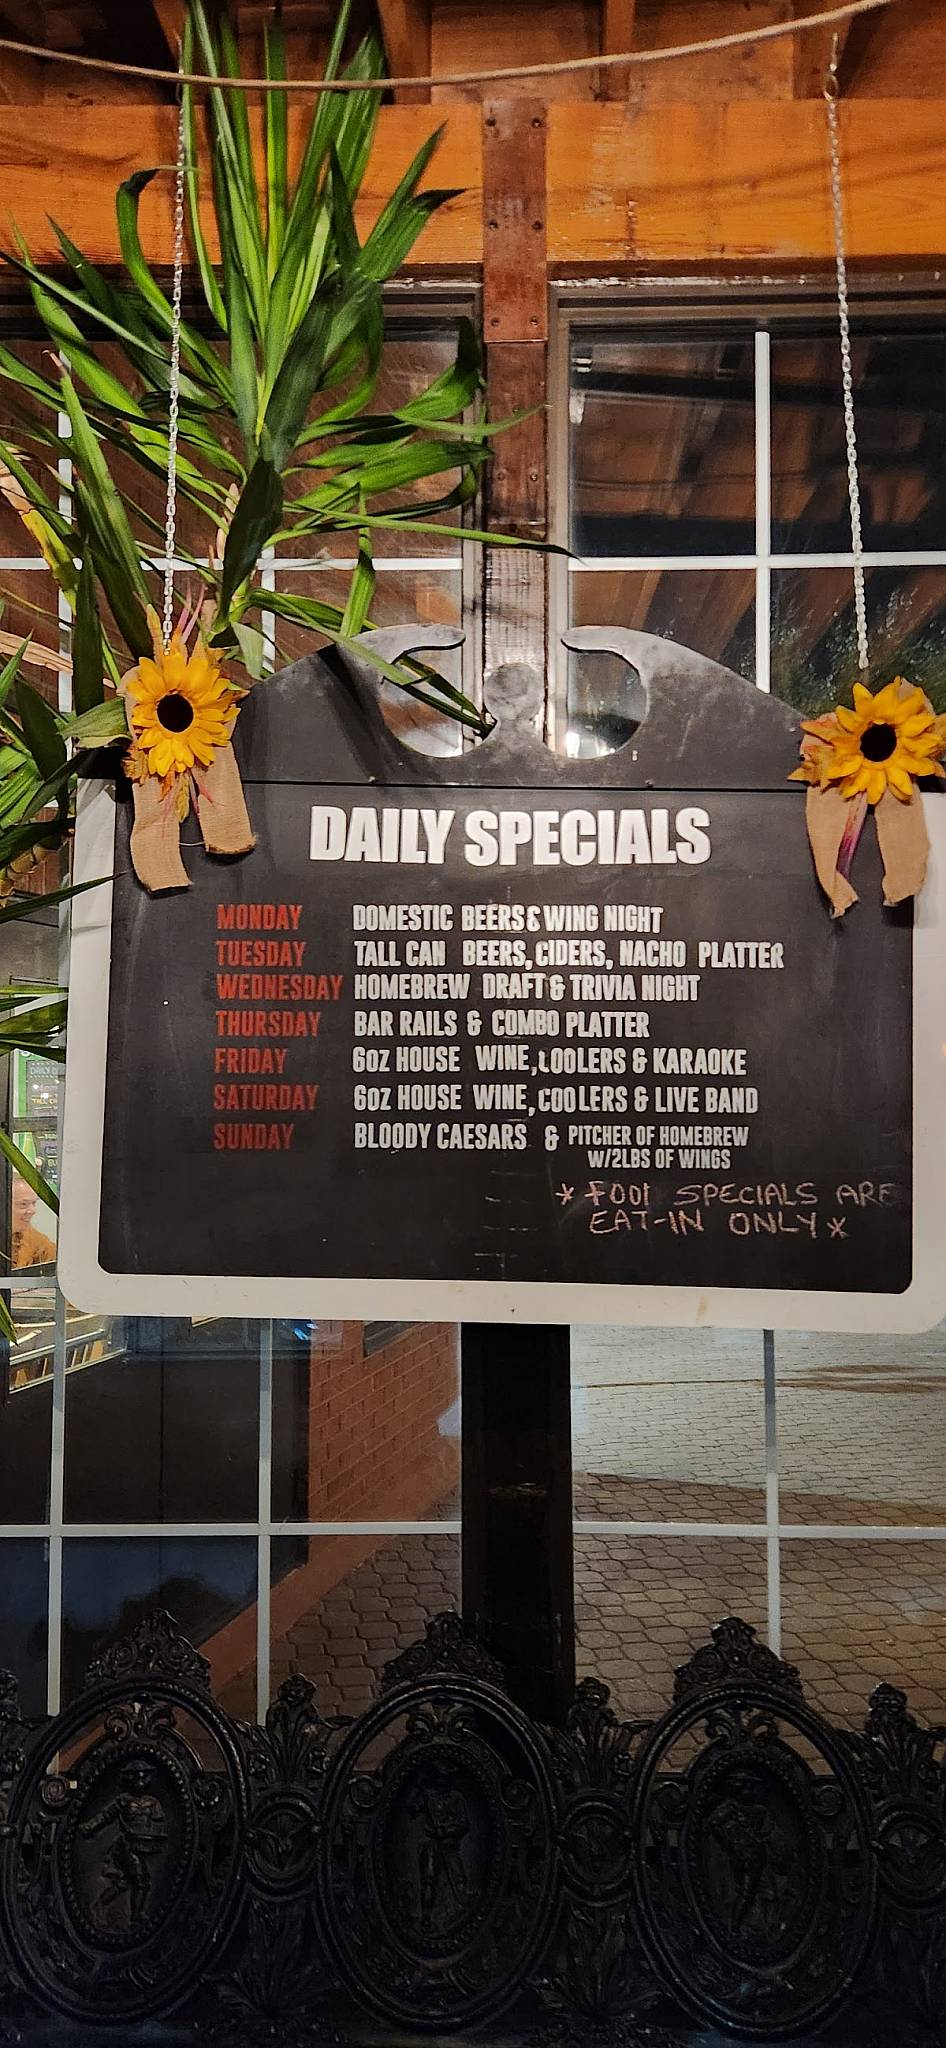 DAILY SPECIALS
MONDAY DOMESTIC BEERS & WING NIGHT
TUESDAY TALL CAN BEERS, CIDERS, NACHO PLATTER
WEDNESDAY HOMEBREW DRAFT & TRIVIA NIGHT
THURSDAY BAR RAILS & COMBO PLATTER
FRIDAY 6OZ HOUSE WINE, COOLERS & KARAOKE
SATURDAY 6OZ HOUSE WINE, COOLERS & LIVE BAND
SUNDAY BLOODY CAESARS & PITCHER OF HOMEBREW
W/2LBS OF WINGS
* FOOD SPECIALS ARE
EAT-IN ONLY *